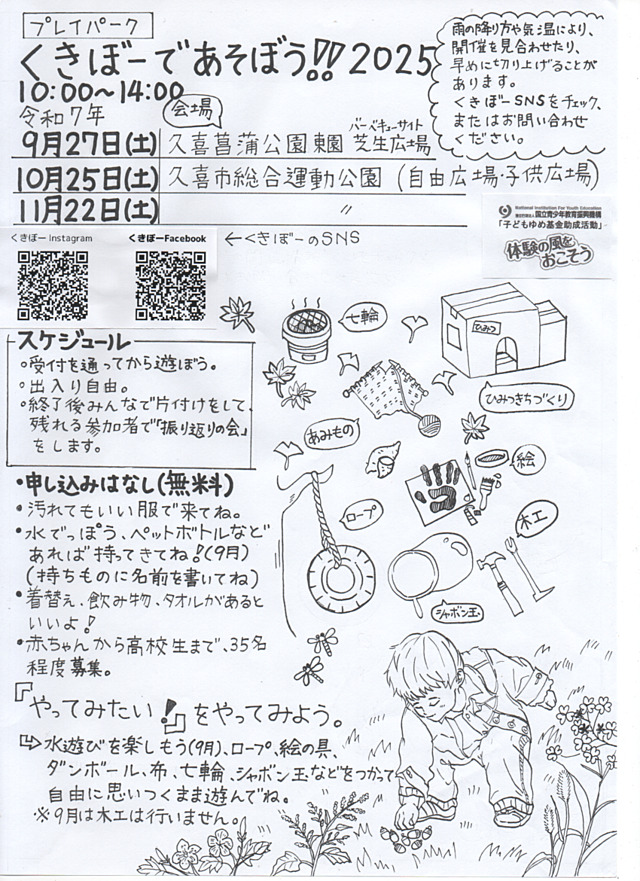 プレイパーク
くきぼーであそぼう!! 2025
10:00〜14:00
令和7年
会場
9月27日(土) 久喜菖蒲公園東園 バーベキューサイト 芝生広場
10月25日(土) 久喜市総合運動公園 (自由広場・子供広場)
11月22日(土) 〃
雨の降り方や気温により、
開催を見合わせたり、
早めに切り上げることが
あります。
くきぼーSNSをチェック、
またはお問い合わせ
ください。
くきぼー Instagram
くきぼーFacebook
←くきぼーのSNS
National Institution For Youth Education
独立行政法人 国立青少年教育振興機構
「子どもゆめ基金助成活動」
体験の風を
おこそう
スケジュール
○受付を通ってから遊ぼう。
○出入り自由。
○終了後みんなで片付けをして、
残れる参加者で「振り返りの会」
をします。
・申し込みはなし(無料)
・汚れてもいい服で来てね。
・水でっぽう、ペットボトルなど
あれば持ってきてね!(9月)
(持ちものに名前を書いてね)
・着替え、飲み物、タオルがあると
いいよ!
・赤ちゃんから高校生まで、35名
程度募集。
『やってみたい!』をやってみよう。
水遊びを楽しもう(9月)、ロープ、絵の具、
ダンボール、布、七輪、シャボン玉などをつかって
自由に思いつくまま遊んでね。
※9月は木工は行いません。
七輪
ひみつ
ひみつきちづくり
あみもの
絵
ロープ
木工
シャボン玉